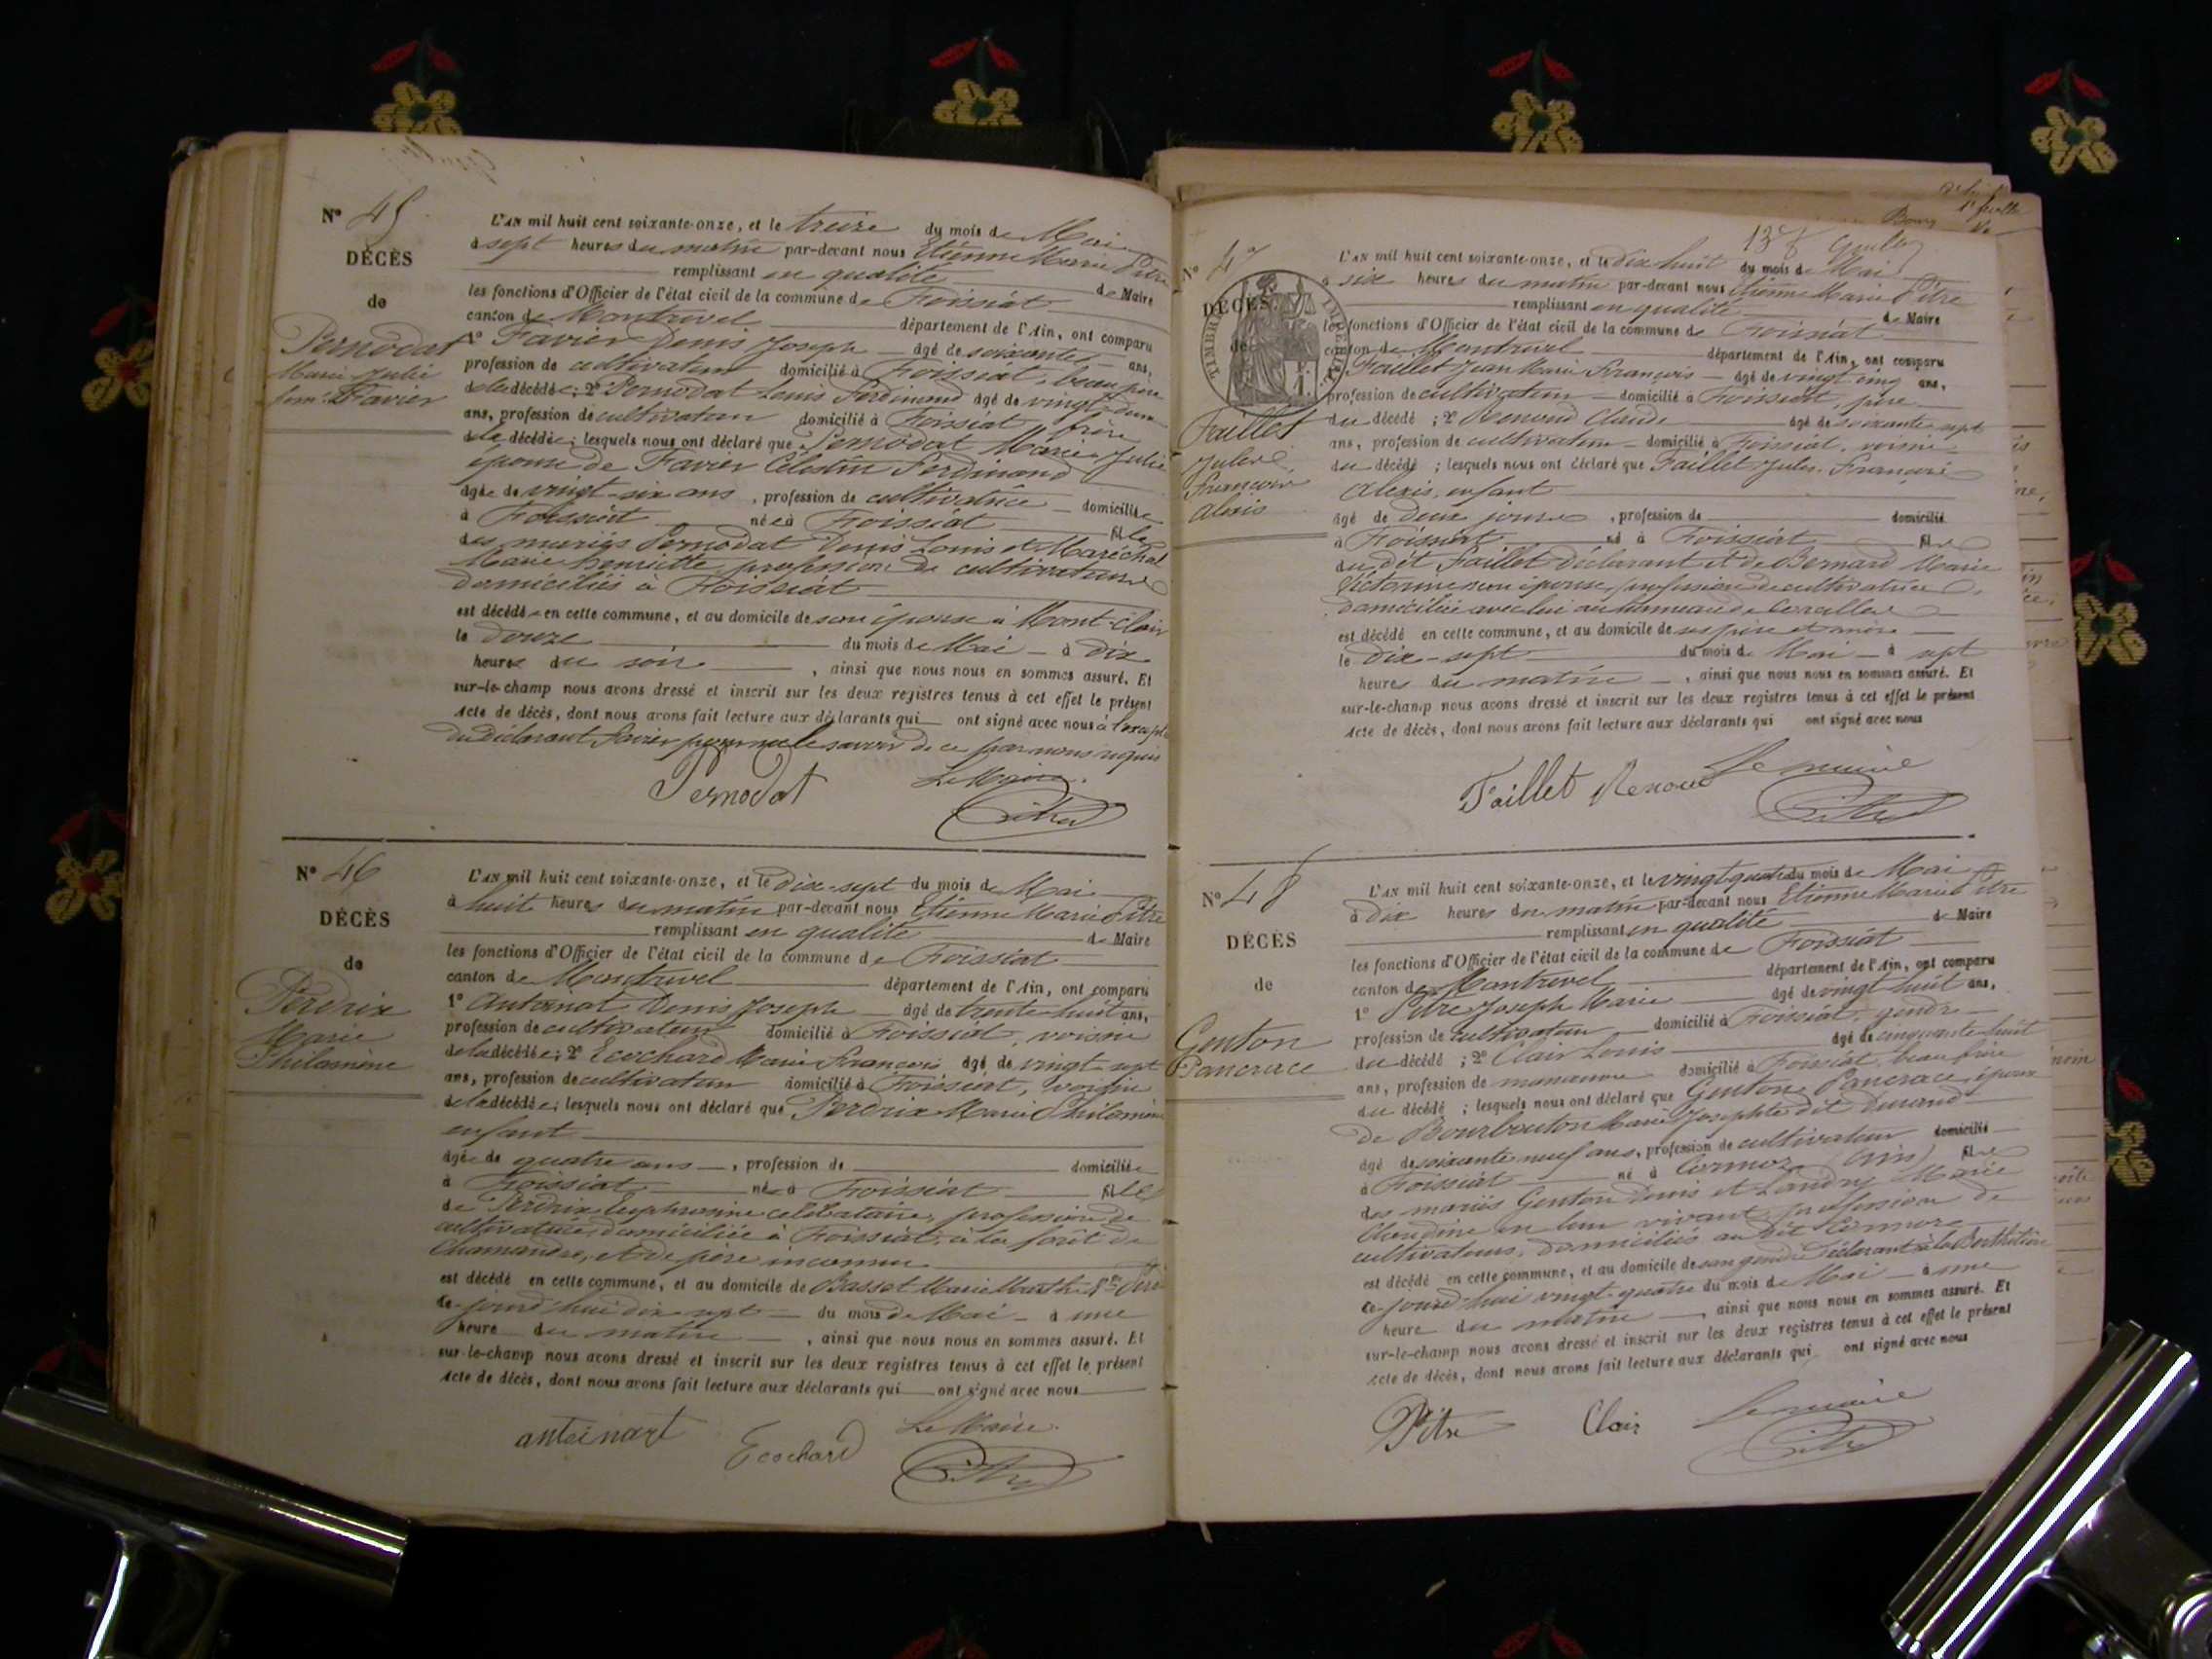 N° 45
DÉCÈS
de
Pernodat
Marie Julie
fem. Favier
L'AN mil huit cent soixante-onze, et le treize du mois de Mai
à sept heures du matin par-devant nous Etienne Marie Pitre
remplissant en qualité de Maire
les fonctions d'Officier de l'état civil de la commune de Foissiat
canton de Montrevel département de l'Ain, ont comparu
1° Favier Denis Joseph âgé de soixante ans,
profession de cultivateur domicilié à Foissiat, beau père
de la décédée; 2° Pernodat Louis Ferdinand âgé de vingt deux
ans, profession de cultivateur domicilié à Foissiat frère
de la décédée; lesquels nous ont déclaré que Pernodat Marie Julie
épouse de Favier Célestin Ferdinand
âgée de vingt-six ans, profession de cultivatrice domiciliée
à Foissiat née à Foissiat fille
des mariés Pernodat Denis Louis et Maréchal
Marie Henriette profession de cultivateurs
domiciliés à Foissiat
est décédée en cette commune, et au domicile de son épouse à Mont-Clair
le douze du mois de Mai à dix
heures du soir, ainsi que nous nous en sommes assuré. Et
sur-le-champ nous avons dressé et inscrit sur les deux registres tenus à cet effet le présent
Acte de décès, dont nous avons fait lecture aux déclarants qui ont signé avec nous à l'except.
du déclarant Favier pour ne le savoir de ce par nous requis
Pernodat Le Maire
Pitre
N° 46
DÉCÈS
de
Perdrix
Marie
Philomène
L'AN mil huit cent soixante-onze, et le dix-sept du mois de Mai
à huit heures du matin par-devant nous Etienne Marie Pitre
remplissant en qualité de Maire
les fonctions d'Officier de l'état civil de la commune de Foissiat
canton de Montrevel département de l'Ain, ont comparu
1° Antoinat Denis Joseph âgé de trente huit ans,
profession de cultivateur domicilié à Foissiat, voisin
de la décédée; 2° Ecochard Marie François âgé de vingt sept
ans, profession de cultivateur domicilié à Foissiat, voisin
de la décédée; lesquels nous ont déclaré que Perdrix Marie Philomène
enfant
âgée de quatre ans, profession de domiciliée
à Foissiat née à Foissiat fille
de Perdrix Euphrosine célibataire, profession de
cultivatrice domiciliée à Foissiat, à la forêt de
Chamandre, et de père inconnu
est décédé en cette commune, et au domicile de Basset Marie Marthe
ce jourd'hui dix sept du mois de Mai à une
heure du matin, ainsi que nous nous en sommes assuré. Et
sur-le-champ nous avons dressé et inscrit sur les deux registres tenus à cet effet le présent
Acte de décès, dont nous avons fait lecture aux déclarants qui ont signé avec nous
antoinart Ecochard Le Maire
Pitre
N° 47
DÉCÈS
de
Faillet
Jules
François
Alexis
TIMBRE IMPÉRIAL
L'AN mil huit cent soixante-onze, et le dix huit du mois de Mai
à six heures du matin par-devant nous Etienne Marie Pitre
remplissant en qualité de Maire
les fonctions d'Officier de l'état civil de la commune de Foissiat
canton de Montrevel département de l'Ain, ont comparu
Faillet Jean Marie François âgé de vingt cinq ans,
profession de cultivateur domicilié à Foissiat, père
du décédé; 2° Renoud Claude âgé de soixante sept
ans, profession de cultivateur domicilié à Foissiat, voisin
du décédé; lesquels nous ont déclaré que Faillet Jules François
Alexis, enfant
âgé de deux jours, profession de domicilié
à Foissiat né à Foissiat fils
du dit Faillet déclarant et de Bernard Marie
Victorine son épouse, profession de cultivatrice
domiciliée avec lui au hameau de
est décédé en cette commune, et au domicile de ses père et mère
le dix-sept du mois de Mai à sept
heures du matin, ainsi que nous nous en sommes assuré. Et
sur-le-champ nous avons dressé et inscrit sur les deux registres tenus à cet effet le présent
Acte de décès, dont nous avons fait lecture aux déclarants qui ont signé avec nous
Faillet Renoud Le maire
Pitre
N° 48
DÉCÈS
de
Genton
Pancrace
L'AN mil huit cent soixante-onze, et le vingt quatre du mois de Mai
à dix heures du matin par-devant nous Etienne Marie Pitre
remplissant en qualité de Maire
les fonctions d'Officier de l'état civil de la commune de Foissiat
canton de Montrevel département de l'Ain, ont comparu
1° Pitre Joseph Marie âgé de vingt huit ans,
profession de cultivateur domicilié à Foissiat, gendre
du décédé; 2° Clair Louis âgé de cinquante huit
ans, profession de manœuvre domicilié à Foissiat, beau frère
du décédé; lesquels nous ont déclaré que Genton Pancrace, époux
de Bourbouton Marie Josephte dit Durand
âgé de soixante neuf ans, profession de cultivateur domicilié
à Foissiat né à Cormoz (Ain) fils
des mariés Genton Denis et Landry Marie
Claudine en leur vivant profession de
cultivateurs, domiciliés au dit Cormoz
est décédé en cette commune, et au domicile de son gendre déclarant à la
ce jourd'hui vingt-quatre du mois de Mai à une
heure du matin, ainsi que nous nous en sommes assuré. Et
sur-le-champ nous avons dressé et inscrit sur les deux registres tenus à cet effet le présent
Acte de décès, dont nous avons fait lecture aux déclarants qui ont signé avec nous
Pitre Clair Le maire
Pitre